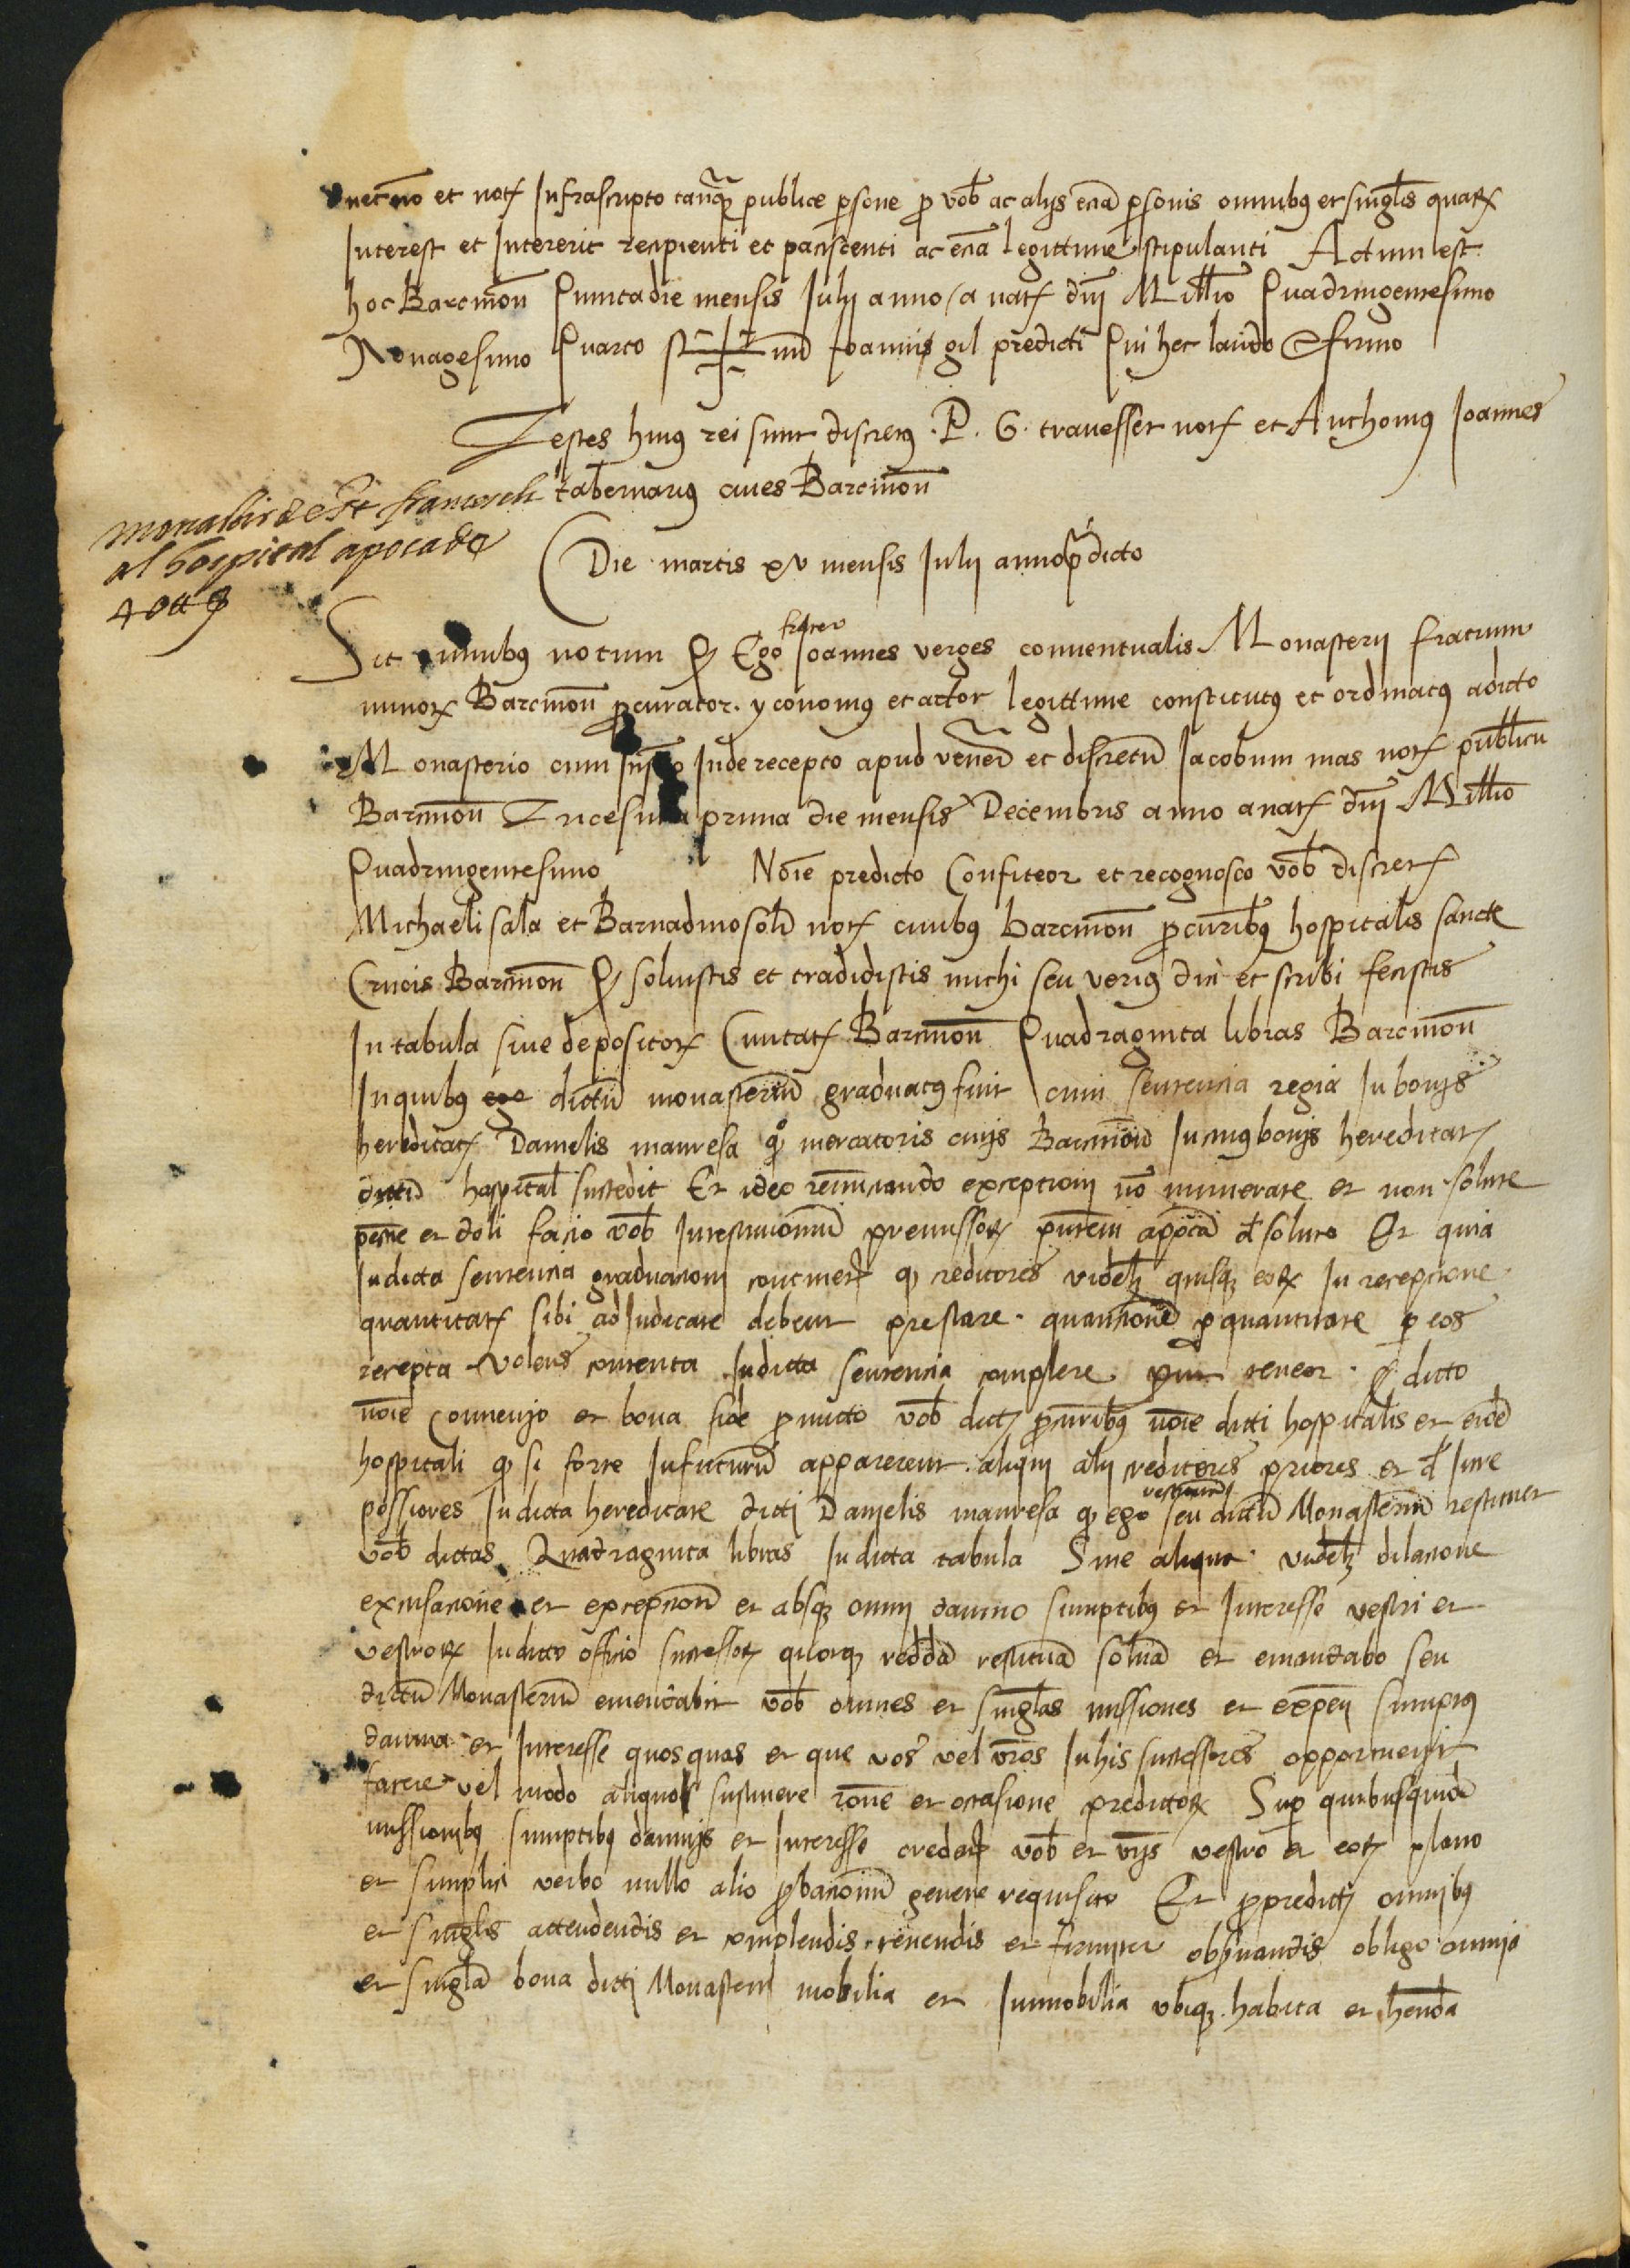 necno et notͬ Infrascripto tanqȝ publice psone p vob ac alijs ecia psonis omnibꝯ et singlis quarꝝ
Interest et Intererit recipienti et paciscenti ac ecia legittime stipulanti Actum est
hoc Barcinon Quinta die mensis Iulij anno a natͬ dnj Millio Quadringentesimo
Nonagesimo Quarto Sig + num Ioannis gil predicti Qui hec laudo & firmo
Testes huiꝯ rei sunt discretꝯ . P . G . trauesser notͬ et Anthoniꝯ Ioannes
tabernariꝯ ciues Barcinon
monastir de St francesch
al hospital apoca de
40 ₶
Die martis xv mensis Iulij anno pdicto
Sit omnibꝯ notum Q Ego frater Ioannes verges conuentualis Monasterij fratrum
minorꝝ Barcinon pcurator . yconomꝯ et actor legittime constitutꝯ et ordinatꝯ a dicto
Monasterio cum Inde recepto apud vener et discretu Iacobum mas notͬ publicu
Barcinon Tricesima prima die mensis Decembris anno a natͬ dnj Millio
Quadringentesimo Noie predicto Confiteor et recognosco vob discretͬ
Michaeli sala et Barnadino soler notͬ ciuibꝯ barcinon pcuribꝯ hospitalis sancte
Crucis Barcinon Q soluistis et tradidistis michi seu veriꝯ dici et scribi fecistis
In tabula siue depositorꝝ Ciuitatͬ Barcinon Quadraginta libras Barcinon
In quibꝯ ego dictu monasteriu graduatꝯ fuit cum sentencia regia In bonijs
hereditatͬ Danielis manresa qº mercatoris ciuis Barcinon In cuiꝯ bonijs hereditatͬ
dictu hospital succedit Et ideo renunciando excepcioni no numerate et non solute
pecnie et doli facio vob In testimoniu premissorꝝ pntem apoca d soluto Et quia
In dicta sentencia graduacioni continetͬ q creditores videlȝ quisqȝ eorꝝ In recepcione
quantitatͬ sibi adIudicate debeut prestare . quaucione p quantitate p eos
recepta Volens contenta In dicta sentencia complere put teneor . Q dicto
noie Conuenjo et bona fide pmitto vob dictͬ pcuribꝯ noie dicti hospitalis et eide
hospitali q si forte In futuru apparereut . aliqui alij creditores priores et d Iure
possiores In dicta hereditate dicti Danjelis manresa q ego restituam seu dictu Monasteriu restituet
vob dictas Quadraginta libras In dicta tabula Sine aliqua . videlȝ dilacione
excusacione et excepcion et absqȝ omnj damno sumptibꝯ et Interesse vestri et
vestrorꝝ In dicto officio successorꝝ quorqȝ redda restitua solua et emendabo seu
dictu Monasteriu emendabit vob omnes et singlas missiones et expen sumptꝯ
damna et Interesse quos quas et que vos vel vros In his successores opportuerit
facere vel modo aliquo sustinere rone et occasione predictorꝝ Sup quibusquide
missionibꝯ sumptibꝯ damnijs et Interesse credatͬ vob et vris vestro et eorꝝ plano
et simplici verbo nullo alio pbacionu genere requisito Et p predictͬ omnibꝯ
et singlis attendendis et complendis tenendis et firmiter obsuandis obligo omnja
et singla bona dictj Monasterij mobilia et Immobilia vbiqȝ habita et henda